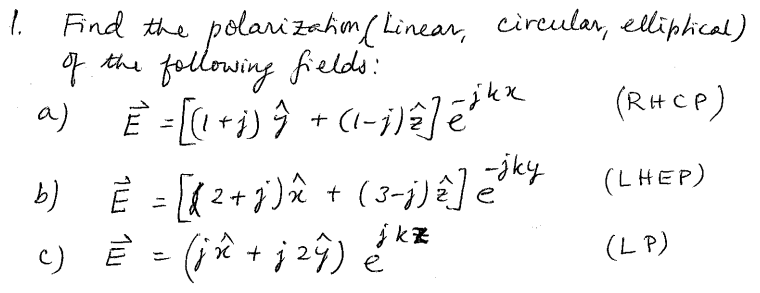 1. Find the polarization (Linear, circular, elliptical)
of the following fields:
a) E⃗ = [(1+j) ŷ + (1-j) ẑ] e^{-jkx} (RHCP)
b) E⃗ = [(2+j) x̂ + (3-j) ẑ] e^{-jky} (LHEP)
c) E⃗ = (j x̂ + j2 ŷ) e^{jkz} (LP)